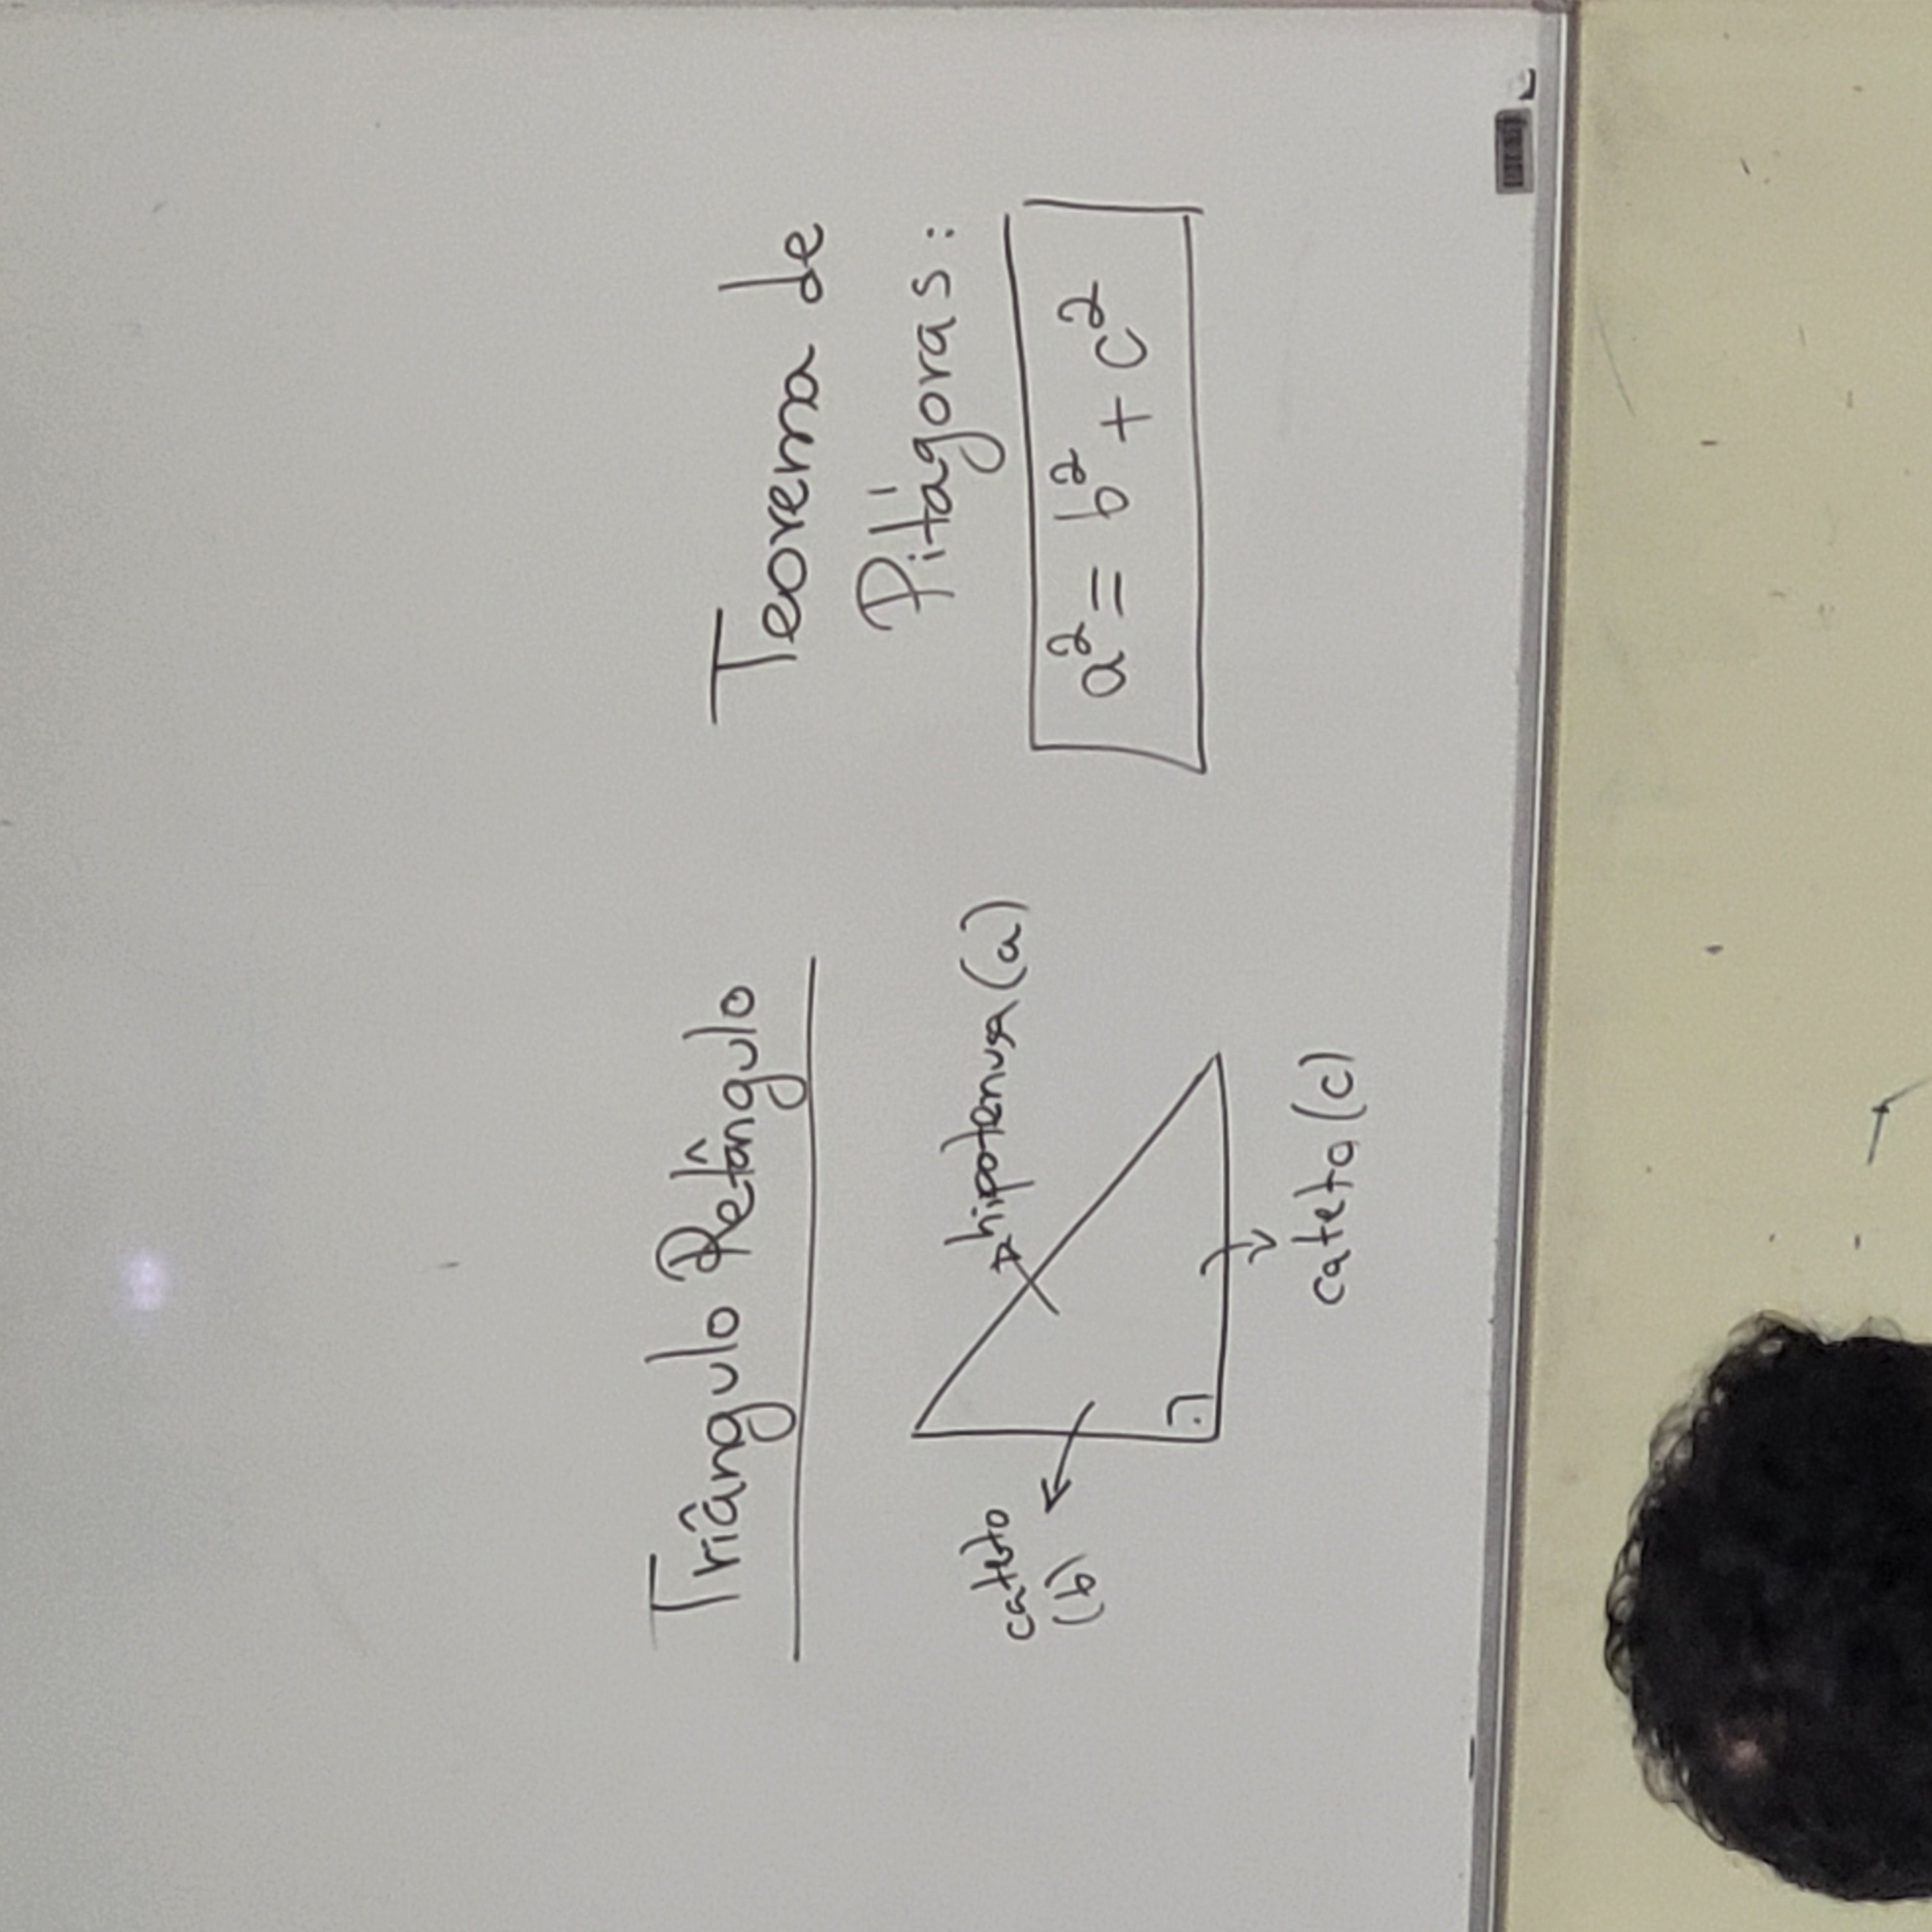 Triângulo Retângulo
hipotenusa (a)
cateto
(b)
cateto (c)
Teorema de
Pitágoras:
a² = b² + c²